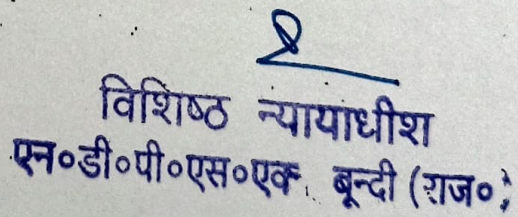 विशिष्ठ न्यायाधीश
एन०डी०पी०एस०एक्ट, बून्दी (राज०)